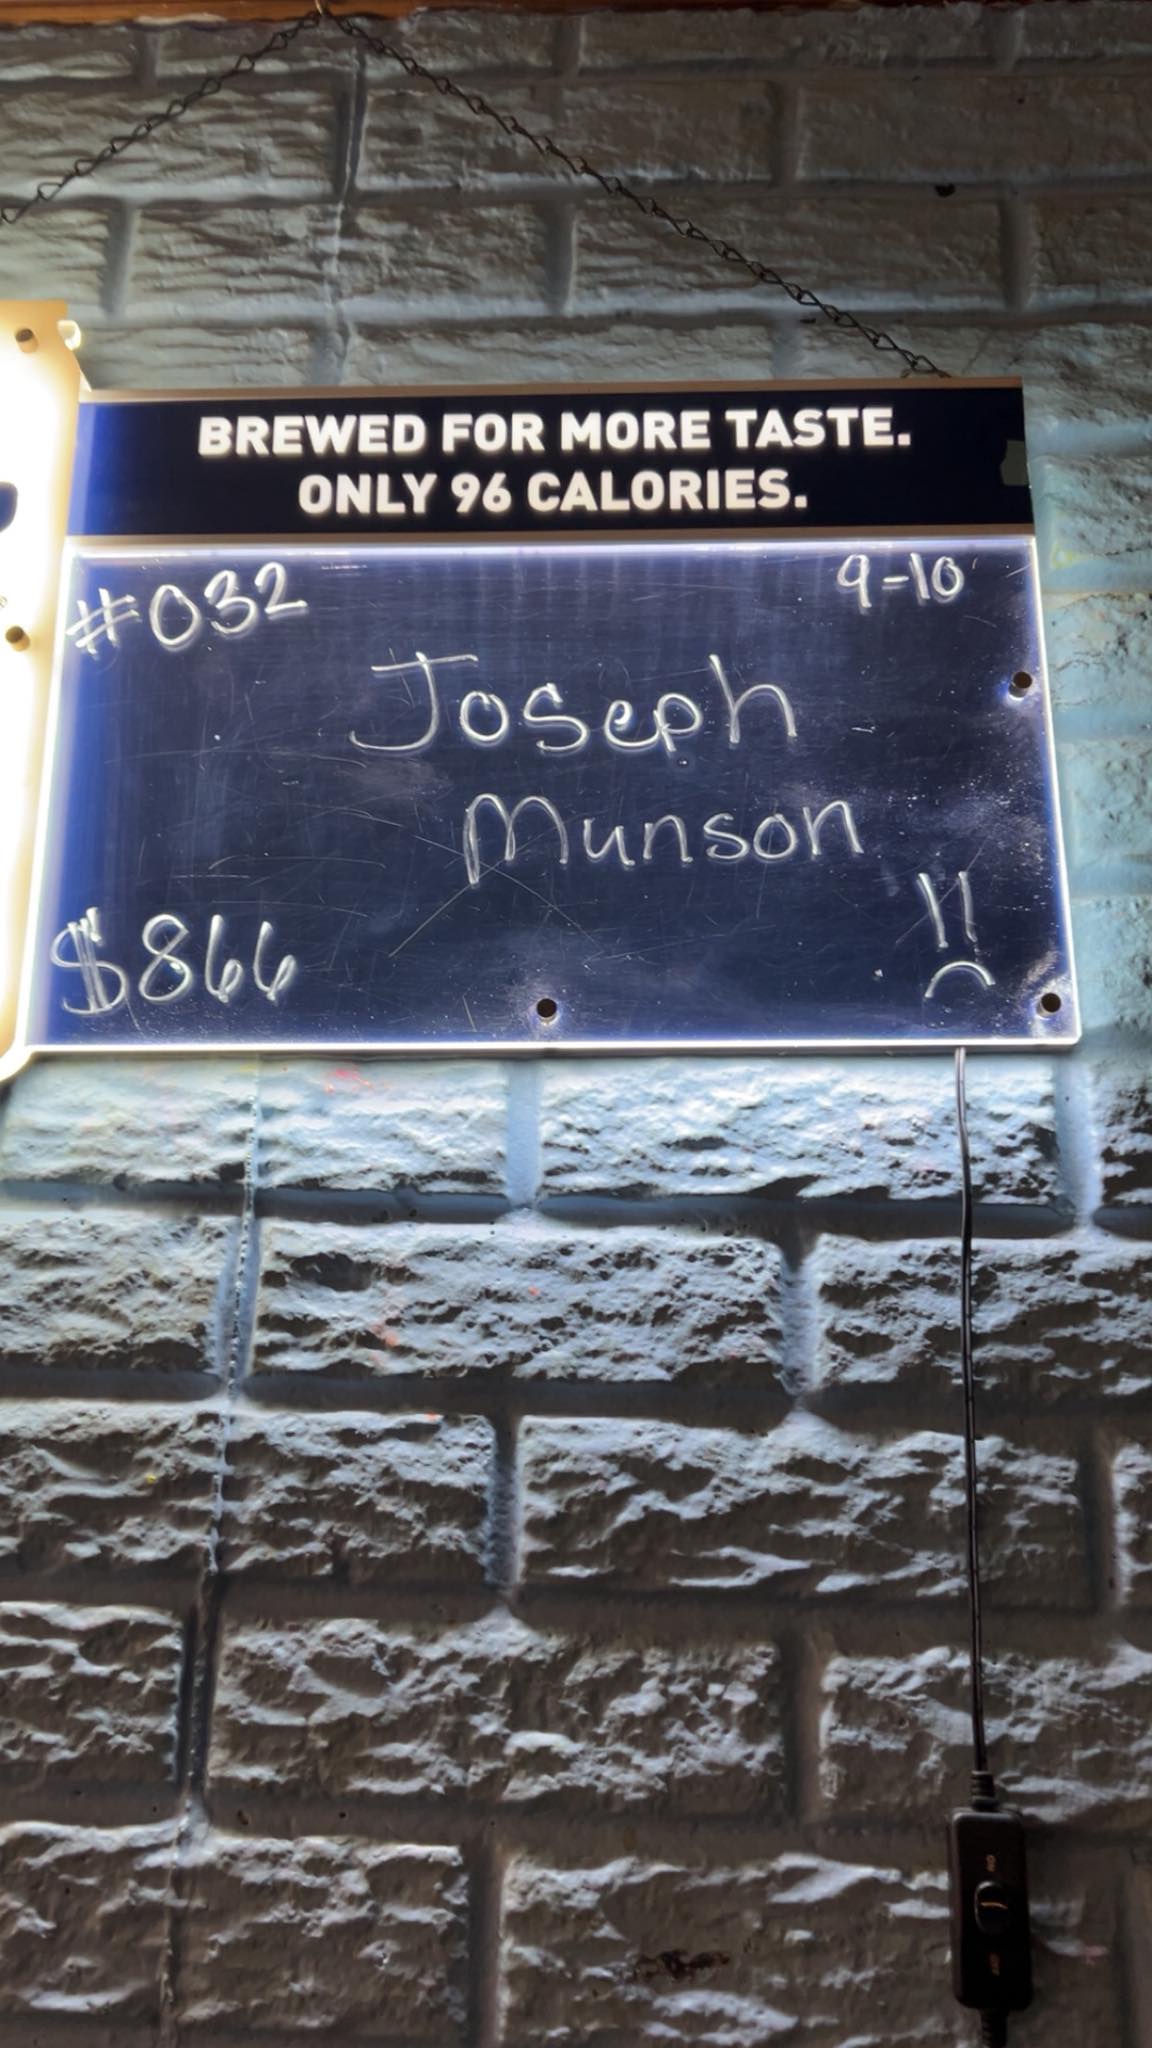 BREWED FOR MORE TASTE.
ONLY 96 CALORIES.
#032
9-10
Joseph
Munson
$866
ON
OFF